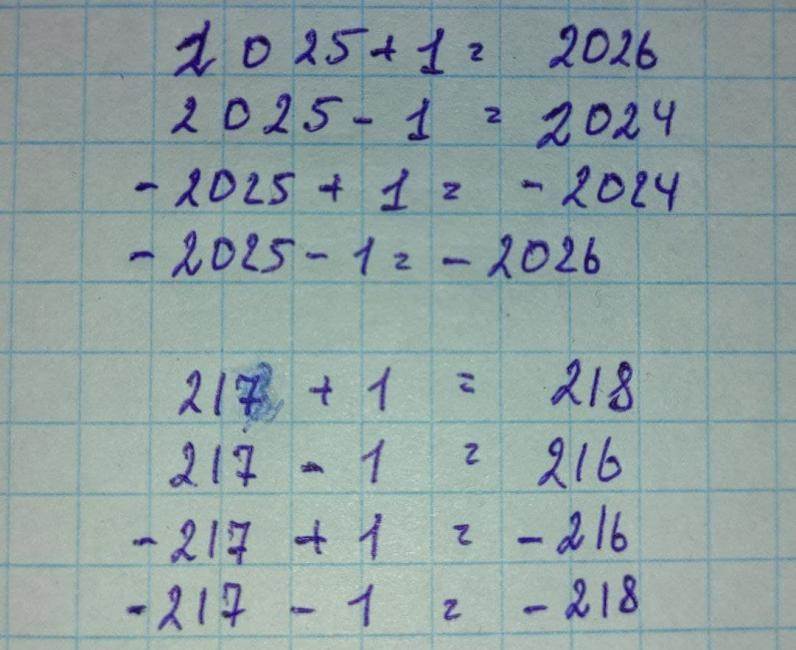 2025 + 1 = 2026
2025 - 1 = 2024
- 2025 + 1 = - 2024
- 2025 - 1 = - 2026
217 + 1 = 218
217 - 1 = 216
- 217 + 1 = - 216
- 217 - 1 = - 218